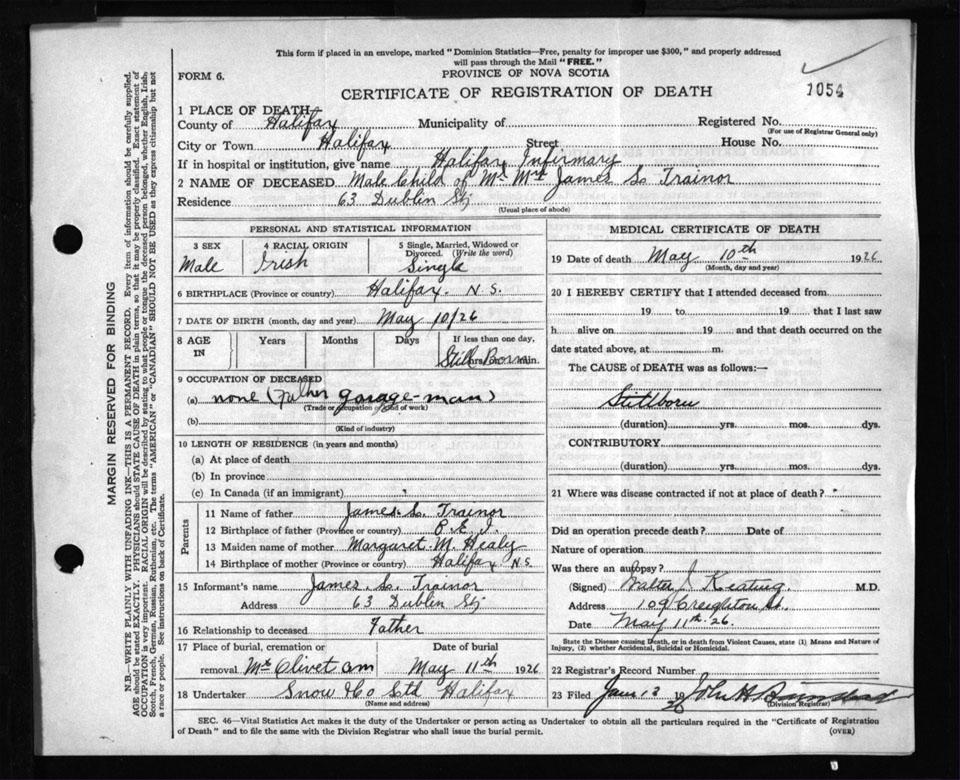 This form if placed in an envelope, marked "Dominion Statistics—Free, penalty for improper use $300," and properly addressed
will pass through the Mail "FREE."
FORM 6.
PROVINCE OF NOVA SCOTIA
CERTIFICATE OF REGISTRATION OF DEATH
1054
1 PLACE OF DEATH—
County of Halifax Municipality of Registered No.
(For use of Registrar General only)
City or Town Halifax Street House No.
If in hospital or institution, give name Halifax Infirmary
2 NAME OF DECEASED Male Child of Mr Mrs James S. Trainor
Residence 63 Dublin St
(Usual place of abode)
PERSONAL AND STATISTICAL INFORMATION
3 SEX
Male
4 RACIAL ORIGIN
Irish
5 Single, Married, Widowed or
Divorced. (Write the word)
Single
6 BIRTHPLACE (Province or country) Halifax. N.S.
7 DATE OF BIRTH (month, day and year) May 10/26
8 AGE IN
Years
Months
Days
If less than one day,
hrs. or min.
Still Born
9 OCCUPATION OF DECEASED
(a) none (Father garage-man)
(Trade or occupation or kind of work)
(b)
(Kind of industry)
10 LENGTH OF RESIDENCE (in years and months)
(a) At place of death
(b) In province
(c) In Canada (if an immigrant)
Parents
11 Name of father James S. Trainor
12 Birthplace of father (Province or country) P.E.I.
13 Maiden name of mother Margaret M. Healy
14 Birthplace of mother (Province or country) Halifax N.S.
15 Informant's name James S. Trainor
Address 63 Dublin St
16 Relationship to deceased Father
17 Place of burial, cremation or
removal Mt Olivet Cem
Date of burial
May 11th 1926
18 Undertaker Snow & Co Ltd Halifax
(Name and address)
MEDICAL CERTIFICATE OF DEATH
19 Date of death May 10th 1926
(Month, day and year)
20 I HEREBY CERTIFY that I attended deceased from
19 to 19 that I last saw
h alive on 19 and that death occurred on the
date stated above, at m.
The CAUSE of DEATH was as follows:—
Stillborn
(duration) yrs. mos. dys.
CONTRIBUTORY
(duration) yrs. mos. dys.
21 Where was disease contracted if not at place of death?
Did an operation precede death? Date of
Nature of operation
Was there an autopsy?
(Signed) Walter J Keating M.D.
Address 109 Creighton St.
Date May 11th. 26.
State the Disease causing Death, or in death from Violent Causes, state (1) Means and Nature of
Injury, (2) whether Accidental, Suicidal or Homicidal.
22 Registrar's Record Number
23 Filed 19 26 John H
(Division Registrar)
SEC. 46—Vital Statistics Act makes it the duty of the Undertaker or person acting as Undertaker to obtain all the particulars required in the "Certificate of Registration
of Death" and to file the same with the Division Registrar who shall issue the burial permit.
(OVER)
MARGIN RESERVED FOR BINDING
N.B.—WRITE PLAINLY WITH UNFADING INK—THIS IS A PERMANENT RECORD. Every item of information should be carefully supplied.
AGE should be stated EXACTLY. PHYSICIANS should STATE CAUSE OF DEATH in plain terms, so that it may be properly classified. Exact statement of
OCCUPATION is very important. RACIAL ORIGIN will be described by stating to what people or tongue the deceased person belonged, whether English, Irish,
Scotch, French, German, Russian, Ruthenian, etc. The terms "AMERICAN" or "CANADIAN" SHOULD NOT BE USED as they express citizenship but not
a race or people. See instructions on back of Certificate.